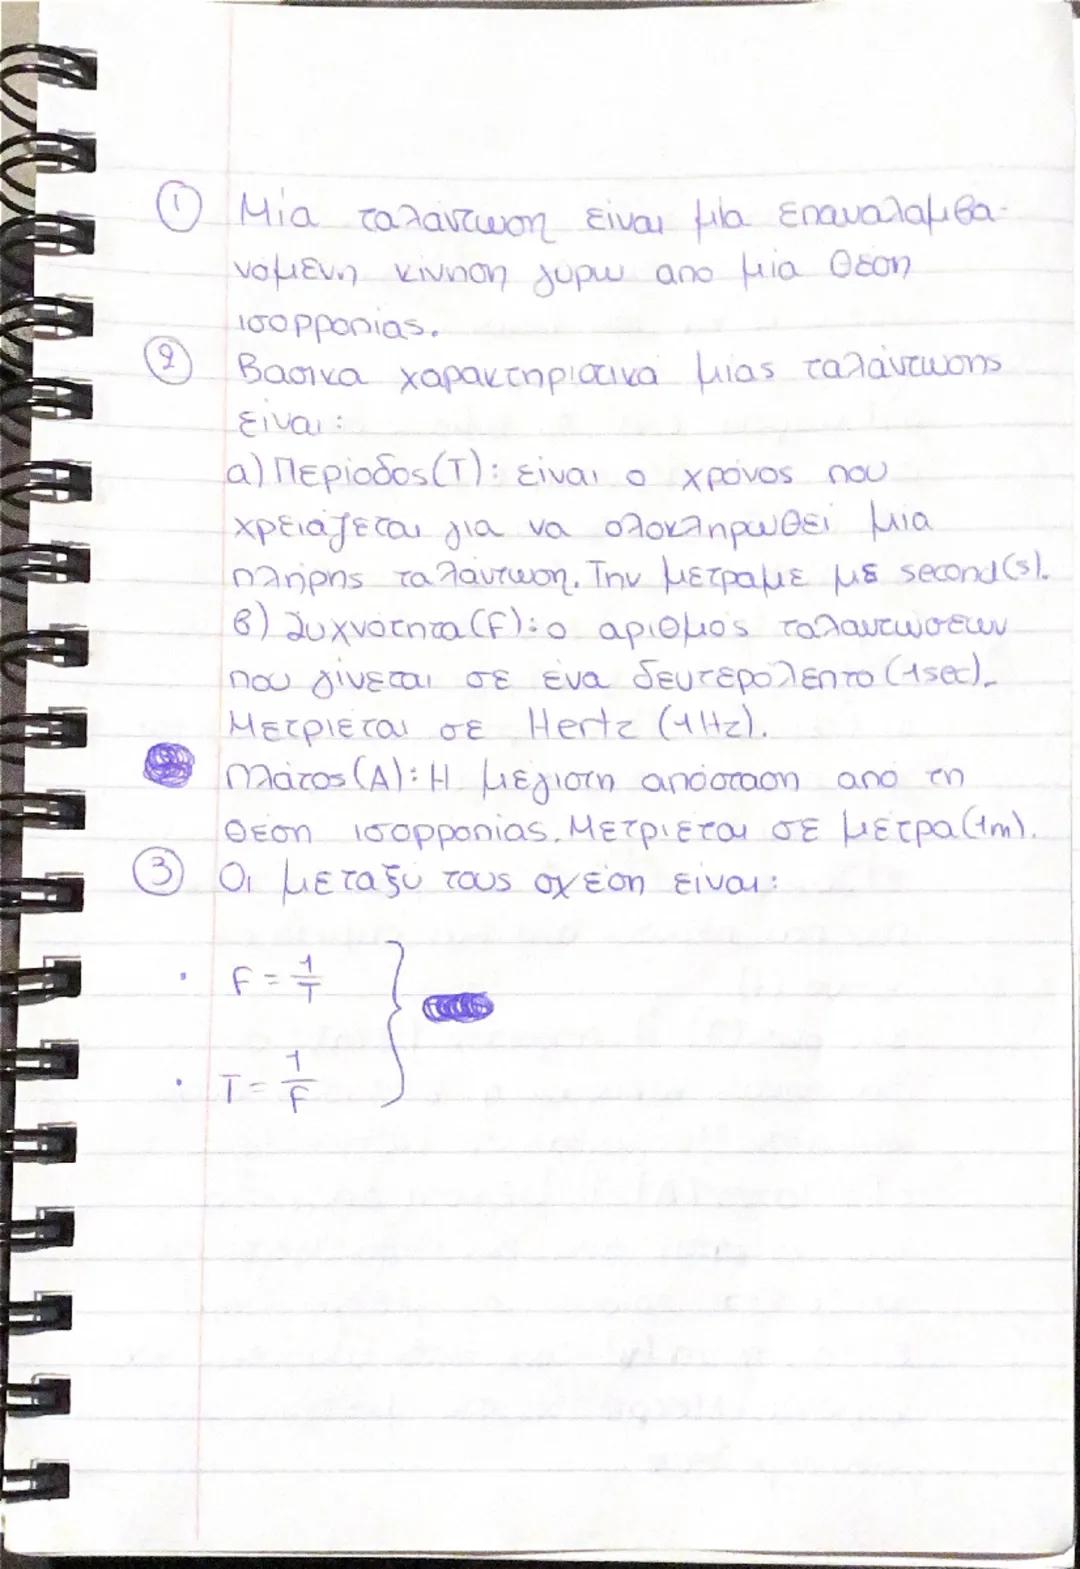 ① Μία ταλάντωση είναι μία επαναλαμβα-
νομένη κίνηση γύρω απο μία θέση
ισορροπίας.
② Βασικα χαρακτηριστικά μιας ταλάντωσης
είναι:
α) Περίοδος (Τ): είναι ο χρόνος που
χρειάζεται για να ολοκληρωθεί μια
πλήρης ταλάντωση. Την μετραμε με second (s).
β) Συχνότητα (F): ο αριθμός ταλαντώσεων
που γίνεται σε ένα δευτερόλεπτο (1sec).
Μετριέται σε Hertz (1Hz).
Πλάτος (Α): Η μέγιστη απόσταση από τη
θέση ισορροπίας. Μετριέται σε μέτρα (1m).
③ Οι μεταξύ τους σχέση είναι:
· F = 1/T
· T = 1/F